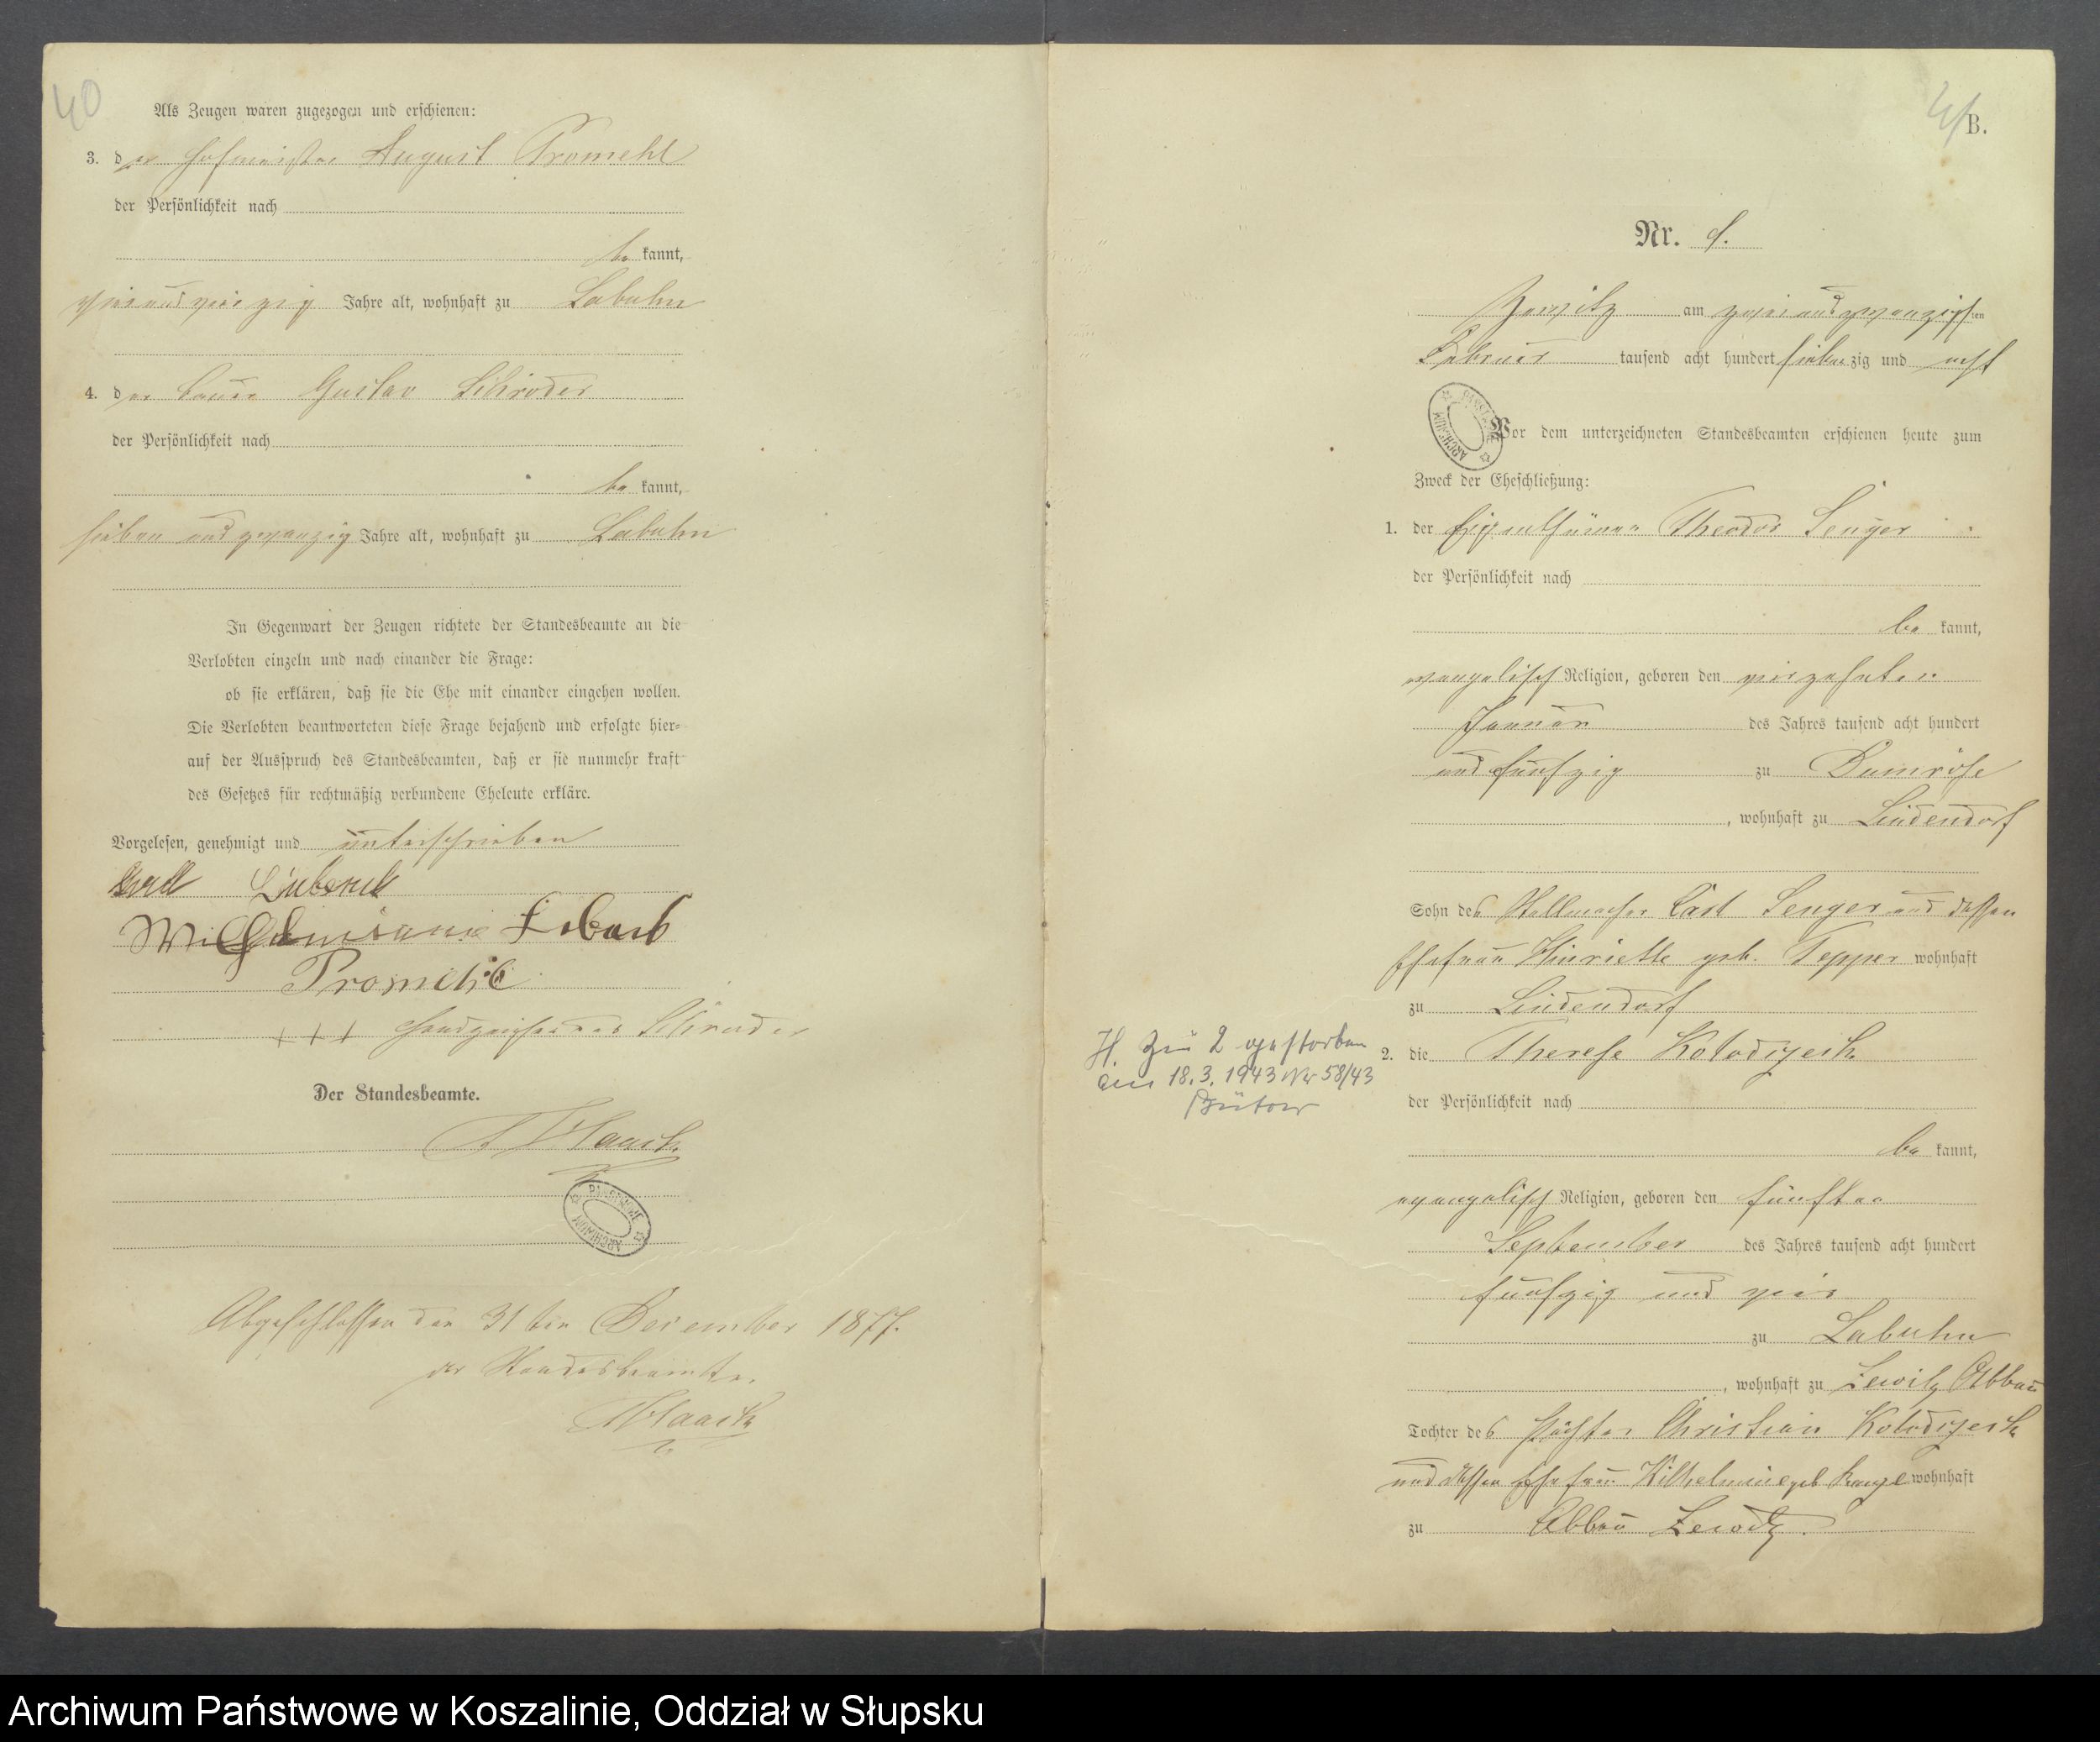 40
Als Zeugen waren zugezogen und erschienen:
3. der Hofmeister August Promehl
der Persönlichkeit nach
be kannt,
vierundvierzig Jahre alt, wohnhaft zu Labuhn
4. der Bauer Gustav Schröder
der Persönlichkeit nach
be kannt,
sieben und zwanzig Jahre alt, wohnhaft zu Labuhn
In Gegenwart der Zeugen richtete der Standesbeamte an die
Verlobten einzeln und nach einander die Frage:
ob sie erklären, daß sie die Ehe mit einander eingehen wollen.
Die Verlobten beantworteten diese Frage bejahend und erfolgte hier-
auf der Ausspruch des Standesbeamten, daß er sie nunmehr kraft
des Gesetzes für rechtmäßig verbundene Eheleute erkläre.
Vorgelesen, genehmigt und unterschrieben
Promehl
+++ Handzeichen des Schröder
Der Standesbeamte.
Abgeschlossen den 31ten December 1877.
der Standesbeamte.
B.
Nr. 1.
Zewitz am zweiundzwanzigsten
Februar tausend acht hundert siebenzig und acht
Vor dem unterzeichneten Standesbeamten erschienen heute zum
Zweck der Eheschließung:
1. der Eigenthümer Theodor Senger
der Persönlichkeit nach
be kannt,
evangelisch Religion, geboren den vierzehnten
Januar des Jahres tausend acht hundert
und fünfzig zu Dumröse
, wohnhaft zu Lindendorf
Sohn des Stellmacher Carl Senger und dessen
Ehefrau Henriette geb. Tepper wohnhaft
zu Lindendorf
H. Zu 2 gestorben
am 18.3.1943 Nr 58/43
Bütow
2. die Therese Kolodzyeik
der Persönlichkeit nach
be kannt,
evangelisch Religion, geboren den fünften
September des Jahres tausend acht hundert
fünfzig und vier
zu Labuhn
, wohnhaft zu Zewitz Abbau
Tochter des Pächter Christian Kolodzyeik
und dessen Ehefrau Wilhelmine geb wohnhaft
zu Abbau Zewitz.
Archiwum Państwowe w Koszalinie, Oddział w Słupsku